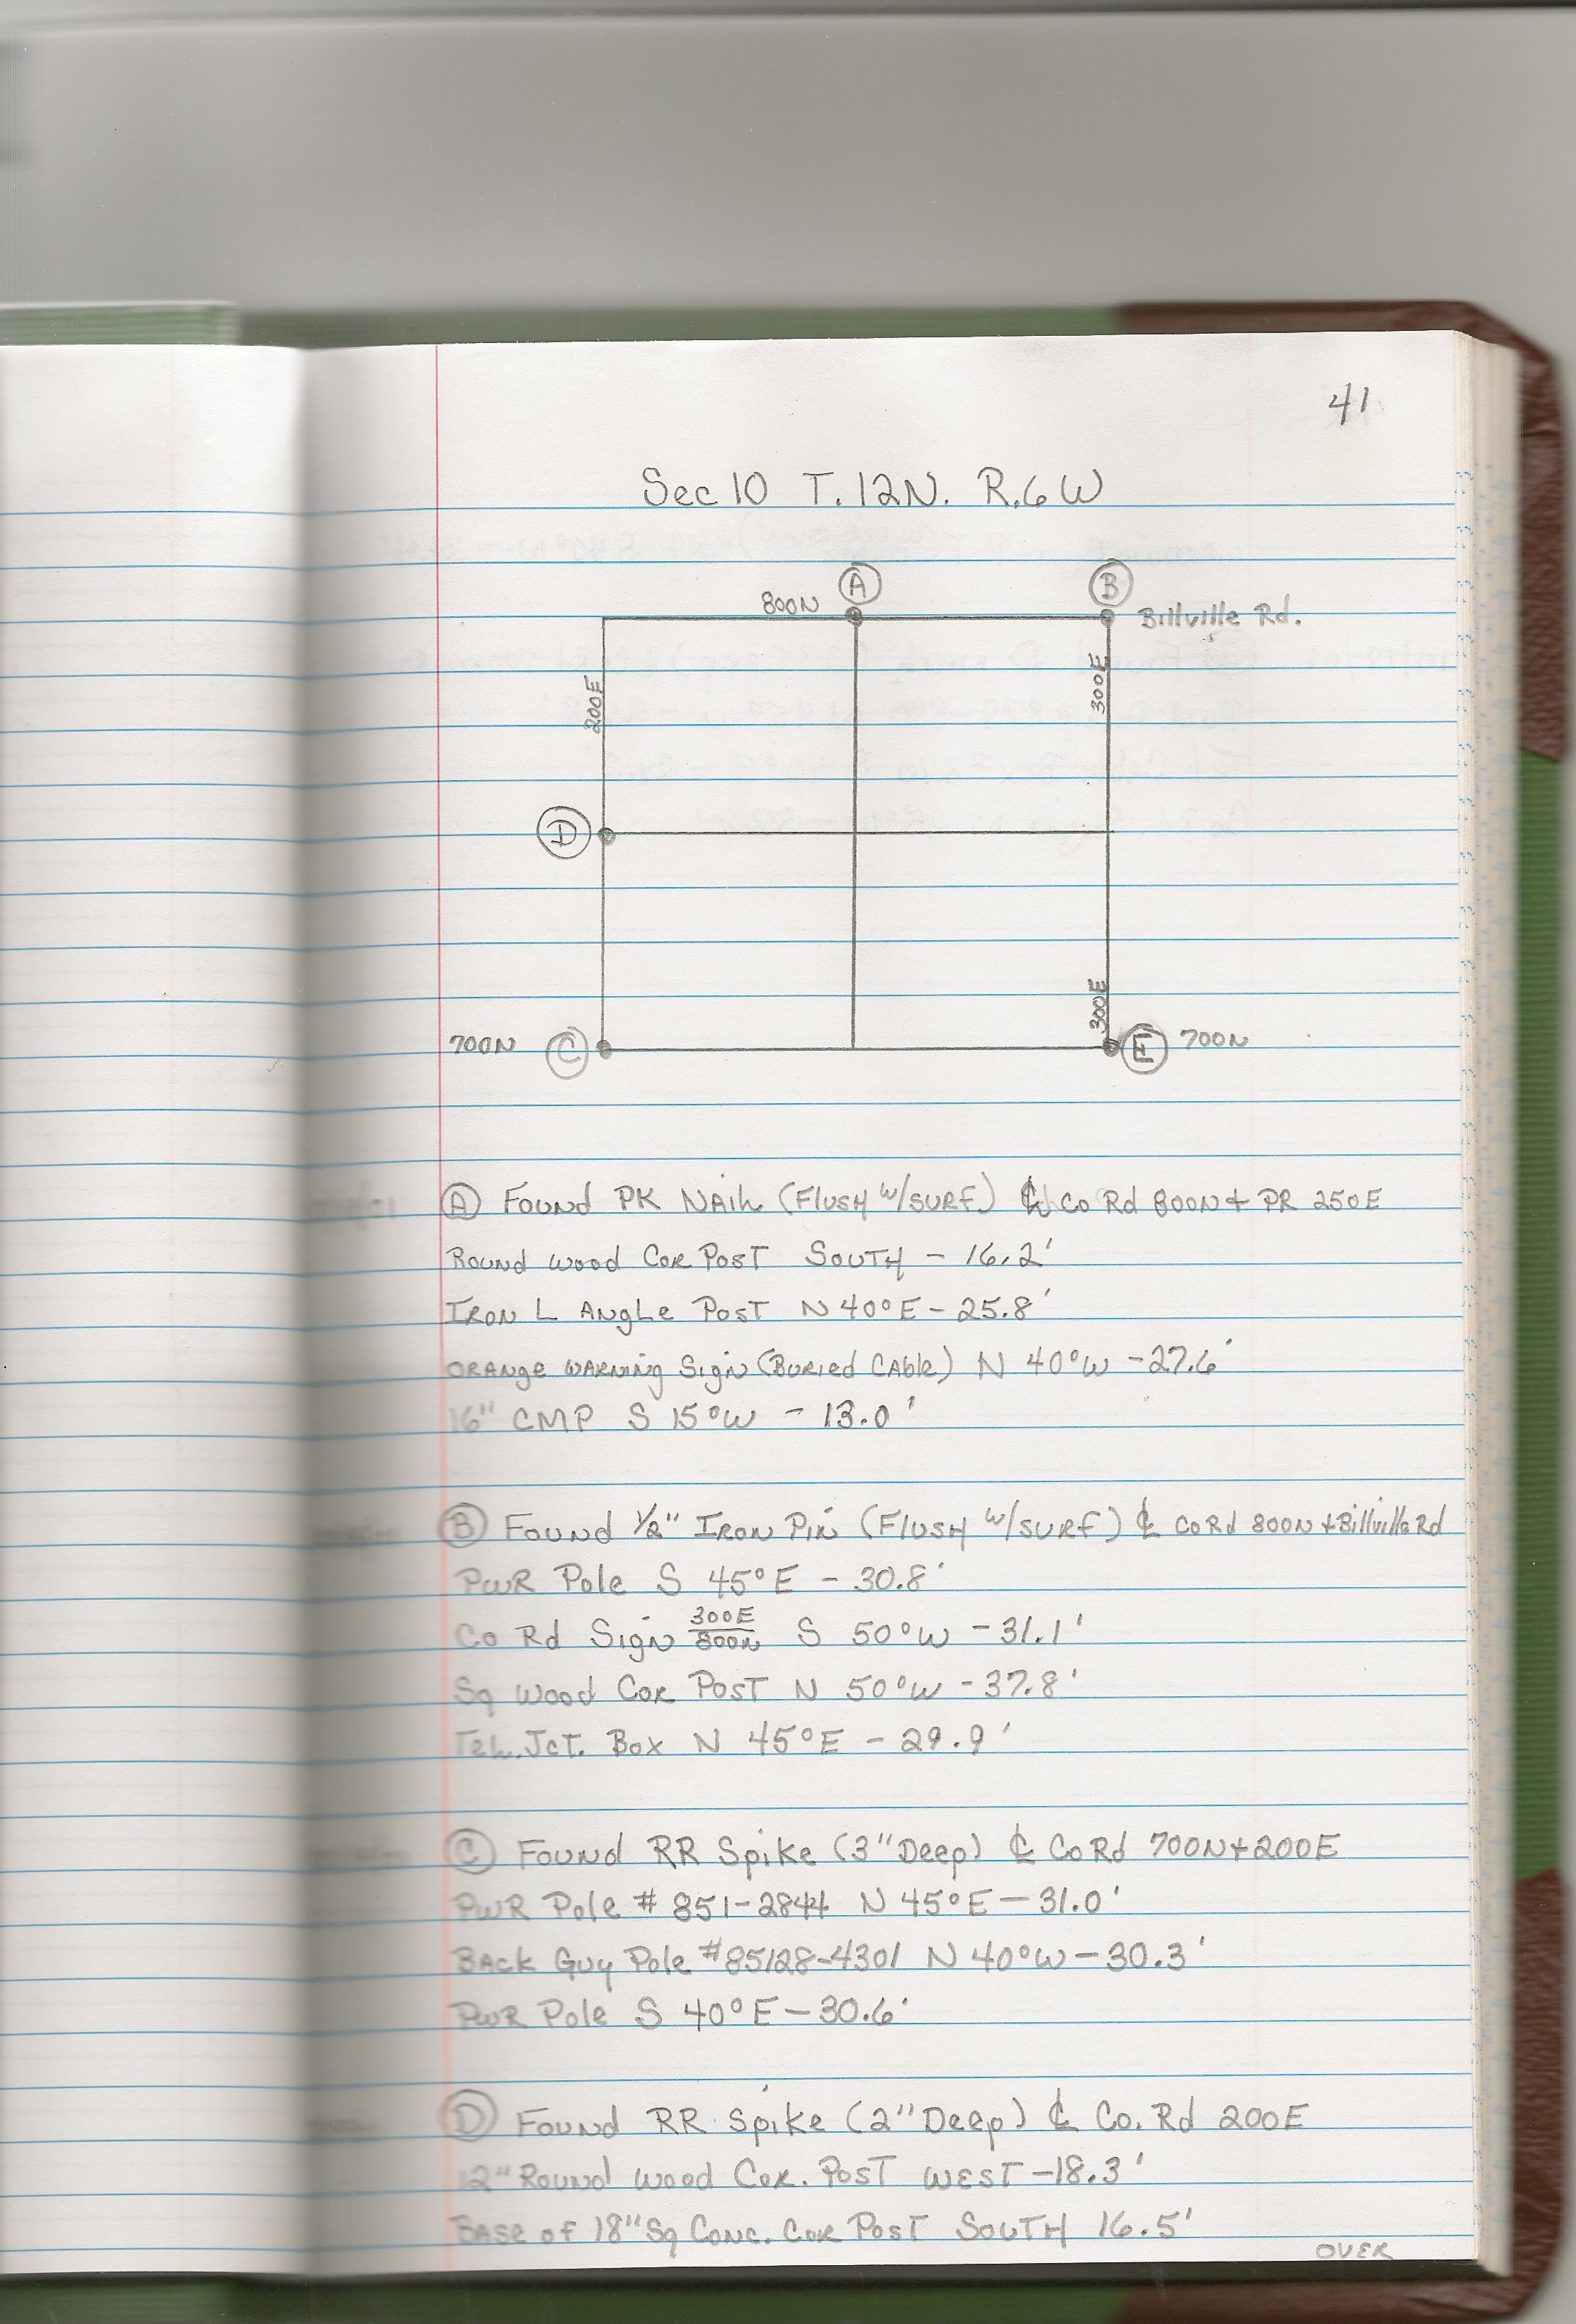 41
Sec 10 T. 12N. R. 6 W
A
B
800N
Billville Rd.
200E
300E
D
300E
700N
C
E
700N
A Found PK Nail (Flush w/surf) ℄ Co Rd 800N + PR 250E
Round Wood Cor Post South - 16.2'
Iron L Angle Post N 40°E - 25.8'
Orange Warning Sign (Buried Cable) N 40°W - 27.6'
16" CMP S 15°W - 13.0'
B Found 1/2" Iron Pin (Flush w/surf) ℄ Co Rd 800N + Billville Rd
PWR Pole S 45°E - 30.8'
Co Rd Sign 300E/800N S 50°W - 31.1'
Sq Wood Cor Post N 50°W - 37.8'
Tel. Jct. Box N 45°E - 29.9'
C Found RR Spike (3" Deep) ℄ Co Rd 700N + 200E
PWR Pole # 851-2844 N 45°E - 31.0'
Back Guy Pole #85128-4301 N 40°W - 30.3'
PWR Pole S 40°E - 30.6'
D Found RR Spike (2" Deep) ℄ Co. Rd 200E
12" Round Wood Cor. Post West - 18.3'
Base of 18" Sq Conc. Cor Post South 16.5'
OVER